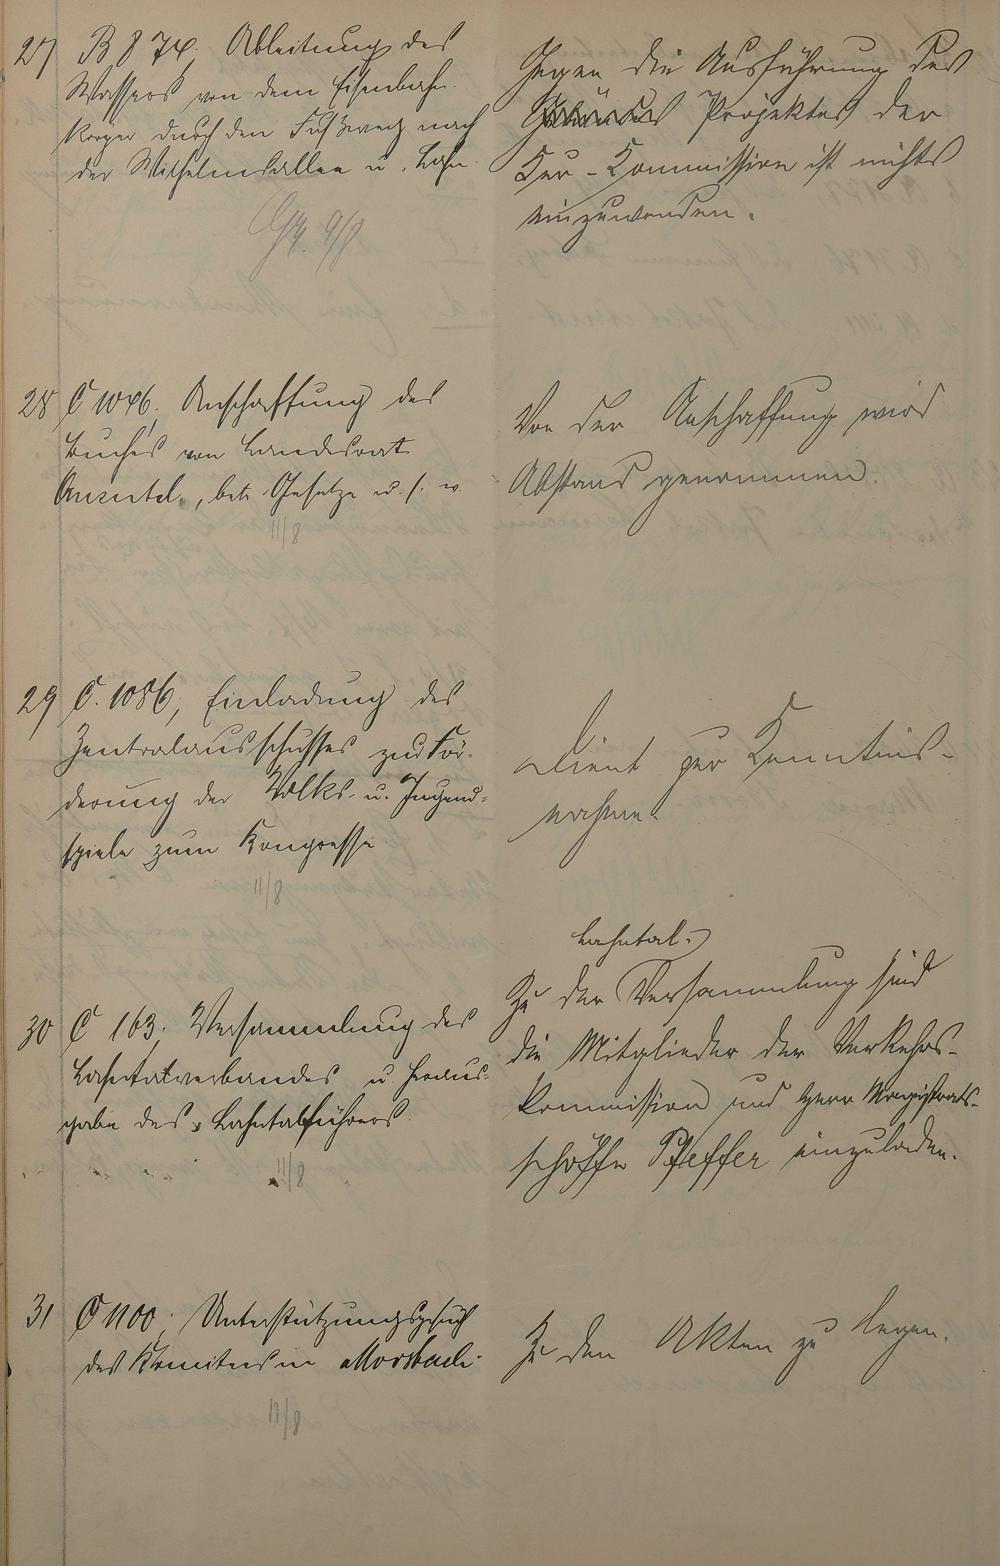 27 B 874. Ableitung des
Wassers von dem Eisenbahn-
körper durch den Fußweg nach
der Wilhelmsallee u. Lahn.
9/8
Gegen die Ausführung des
Projektes der
Kur-Kommission ist nichts
einzuwenden.
28 C 1046. Anschaffung des
Buches von Landesrat
betr. Gesetze u. s. w.
11/8
Von der Anschaffung wird
Abstand genommen.
29 C. 1086, Einladung des
Zentralausschusses zur För-
derung der Volks- u. Jugend-
spiele zum Kongresse
11/8
Dient zur Kenntnis-
nahme.
30 C 163. Versammlung des
Lahntalverbandes u. Heraus-
gabe des Lahntalführers.
11/8
Lahntal-
Zu der Versammlung sind
die Mitglieder der Verkehrs-
kommission und Herr Magistrats-
schöffe Pfeffer einzuladen.
31 C 1100. Unterstützungsgesuch
des Komitees in Morsbach.
11/8
Zu den Akten zu legen.